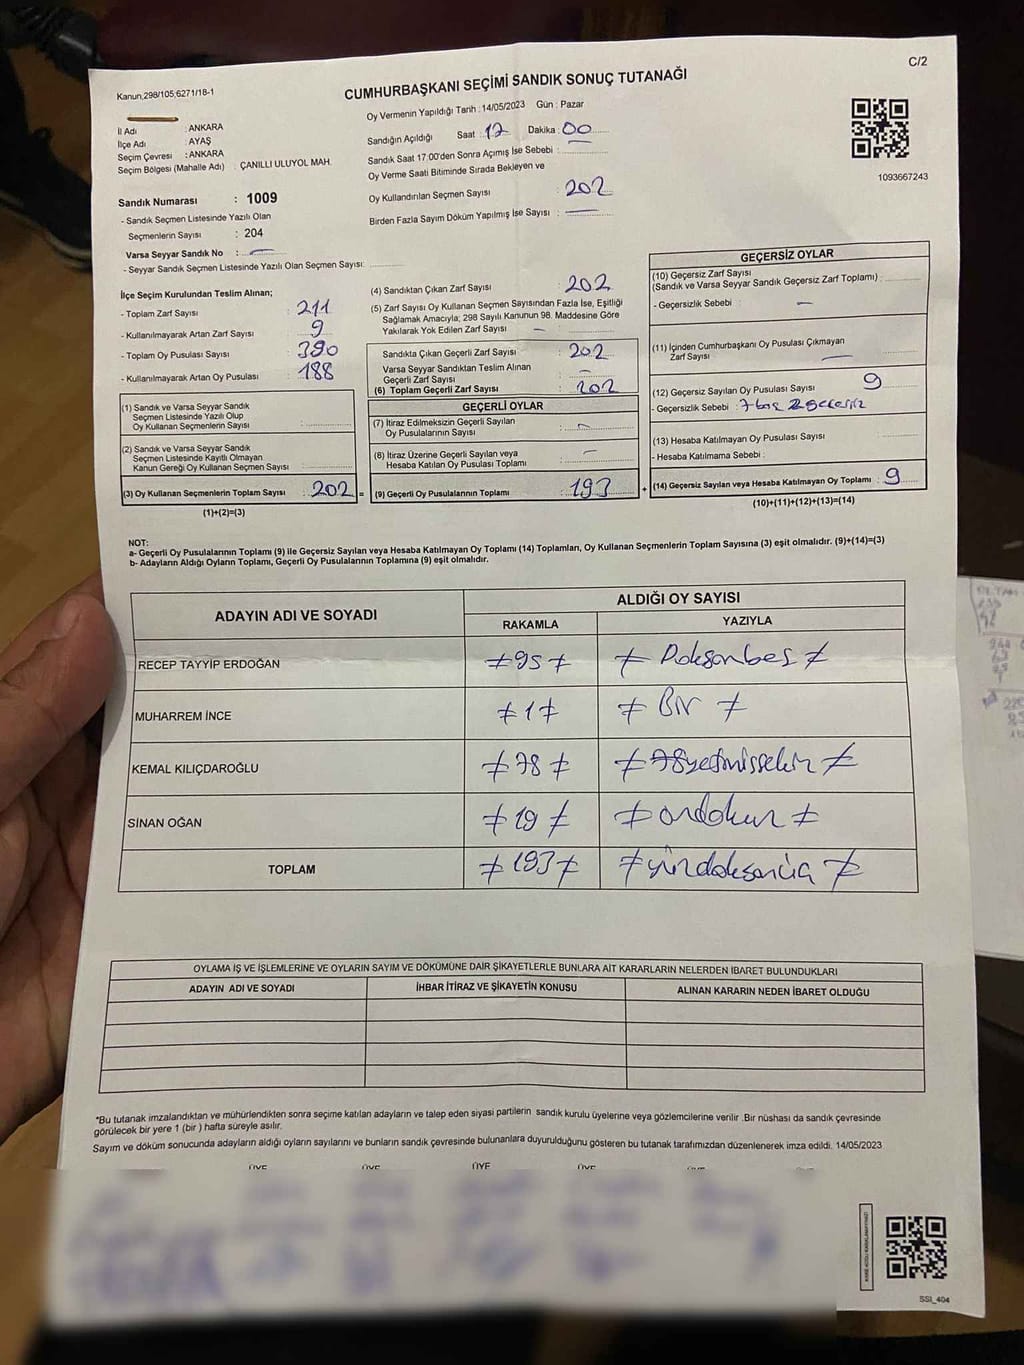 C/2
Kanun,298/105;6271/18-1
CUMHURBAŞKANI SEÇİMİ SANDIK SONUÇ TUTANAĞI
İl Adı : ANKARA
İlçe Adı : AYAŞ
Seçim Çevresi : ANKARA
Seçim Bölgesi (Mahalle Adı) : ÇANILLI ULUYOL MAH.
Oy Vermenin Yapıldığı Tarih : 14/05/2023 Gün : Pazar
Sandığın Açıldığı Saat : 17 Dakika : 00
Sandık Saat 17:00'den Sonra Açımış İse Sebebi :
Oy Verme Saati Bitiminde Sırada Bekleyen ve
Oy Kullandırılan Seçmen Sayısı : 202
Birden Fazla Sayım Döküm Yapılmış İse Sayısı : —
1093667243
Sandık Numarası : 1009
- Sandık Seçmen Listesinde Yazılı Olan
Seçmenlerin Sayısı : 204
Varsa Seyyar Sandık No : —
- Seyyar Sandık Seçmen Listesinde Yazılı Olan Seçmen Sayısı:
İlçe Seçim Kurulundan Teslim Alınan;
- Toplam Zarf Sayısı : 211
- Kullanılmayarak Artan Zarf Sayısı : 9
- Toplam Oy Pusulası Sayısı : 390
- Kullanılmayarak Artan Oy Pusulası : 188
(1) Sandık ve Varsa Seyyar Sandık
Seçmen Listesinde Yazılı Olup
Oy Kullanan Seçmenlerin Sayısı :
(2) Sandık ve Varsa Seyyar Sandık
Seçmen Listesinde Kayıtlı Olmayan
Kanun Gereği Oy Kullanan Seçmen Sayısı :
(3) Oy Kullanan Seçmenlerin Toplam Sayısı : 202 =
(1)+(2)=(3)
(4) Sandıktan Çıkan Zarf Sayısı : 202
(5) Zarf Sayısı Oy Kullanan Seçmen Sayısından Fazla İse, Eşitliği
Sağlamak Amacıyla; 298 Sayılı Kanunun 98. Maddesine Göre
Yakılarak Yok Edilen Zarf Sayısı : —
Sandıkta Çıkan Geçerli Zarf Sayısı : 202
Varsa Seyyar Sandıktan Teslim Alınan
Geçerli Zarf Sayısı : —
(6) Toplam Geçerli Zarf Sayısı : 202
GEÇERLİ OYLAR
(7) İtiraz Edilmeksizin Geçerli Sayılan
Oy Pusulalarının Sayısı : —
(8) İtiraz Üzerine Geçerli Sayılan veya
Hesaba Katılan Oy Pusulası Toplamı : —
(9) Geçerli Oy Pusulalarının Toplamı : 193 +
GEÇERSİZ OYLAR
(10) Geçersiz Zarf Sayısı
(Sandık ve Varsa Seyyar Sandık Geçersiz Zarf Toplamı) :
- Geçersizlik Sebebi : —
(11) İçinden Cumhurbaşkanı Oy Pusulası Çıkmayan
Zarf Sayısı : —
(12) Geçersiz Sayılan Oy Pusulası Sayısı : 9
- Geçersizlik Sebebi : 7 boş 2 geçersiz
(13) Hesaba Katılmayan Oy Pusulası Sayısı :
- Hesaba Katılmama Sebebi :
(14) Geçersiz Sayılan veya Hesaba Katılmayan Oy Toplamı : 9
(10)+(11)+(12)+(13)=(14)
NOT:
a- Geçerli Oy Pusulalarının Toplamı (9) ile Geçersiz Sayılan veya Hesaba Katılmayan Oy Toplamı (14) Toplamları, Oy Kullanan Seçmenlerin Toplam Sayısına (3) eşit olmalıdır. (9)+(14)=(3)
b- Adayların Aldığı Oyların Toplamı, Geçerli Oy Pusulalarının Toplamına (9) eşit olmalıdır.
ADAYIN ADI VE SOYADI ALDIĞI OY SAYISI
RAKAMLA YAZIYLA
RECEP TAYYİP ERDOĞAN ≠ 95 ≠ ≠ Doksanbeş ≠
MUHARREM İNCE ≠ 1 ≠ ≠ Bir ≠
KEMAL KILIÇDAROĞLU ≠ 78 ≠ ≠ 78 yetmişsekiz ≠
SİNAN OĞAN ≠ 19 ≠ ≠ ondokuz ≠
TOPLAM ≠ 193 ≠ ≠ yüzdoksanüç ≠
OYLAMA İŞ VE İŞLEMLERİNE VE OYLARIN SAYIM VE DÖKÜMÜNE DAİR ŞİKAYETLERLE BUNLARA AİT KARARLARIN NELERDEN İBARET BULUNDUKLARI
ADAYIN ADI VE SOYADI İHBAR İTİRAZ VE ŞİKAYETİN KONUSU ALINAN KARARIN NEDEN İBARET OLDUĞU
*Bu tutanak imzalandıktan ve mühürlendikten sonra seçime katılan adayların ve talep eden siyasi partilerin sandık kurulu üyelerine veya gözlemcilerine verilir .Bir nüshası da sandık çevresinde
görülecek bir yere 1 (bir ) hafta süreyle asılır.
Sayım ve döküm sonucunda adayların aldığı oyların sayılarını ve bunların sandık çevresinde bulunanlara duyurulduğunu gösteren bu tutanak tarafımızdan düzenlenerek imza edildi. 14/05/2023
ÜYE ÜYE ÜYE ÜYE ÜYE
SSI_404